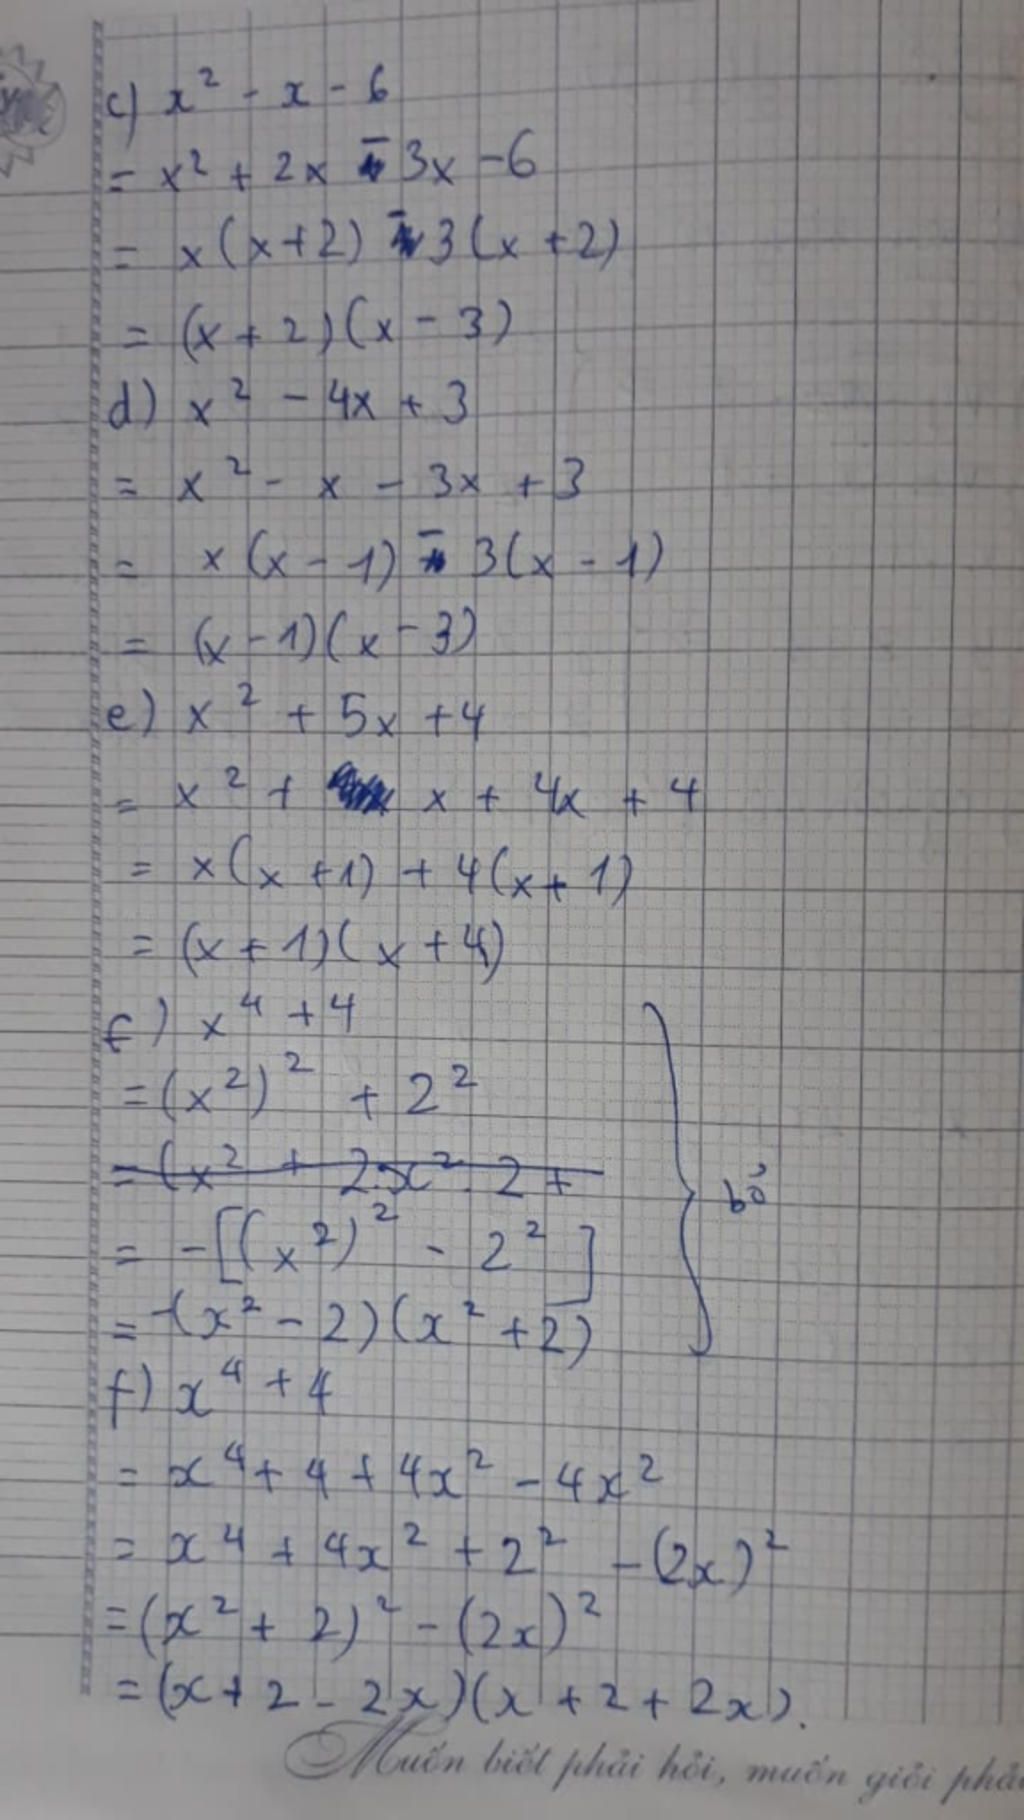 c) x² - x - 6
= x² + 2x - 3x - 6
= x(x+2) - 3(x+2)
= (x+2)(x-3)
d) x² - 4x + 3
= x² - x - 3x + 3
= x(x-1) - 3(x-1)
= (x-1)(x-3)
e) x² + 5x + 4
= x² + x + 4x + 4
= x(x+1) + 4(x+1)
= (x+1)(x+4)
f) x⁴ + 4
= (x²)² + 2²
= (x² + 2.x².2 +
bỏ
= -[(x²)² - 2²]
= -(x² - 2)(x² + 2)
f) x⁴ + 4
= x⁴ + 4 + 4x² - 4x²
= x⁴ + 4x² + 2² - (2x)²
= (x² + 2)² - (2x)²
= (x + 2 - 2x)(x + 2 + 2x).
Muốn biết phải hỏi, muốn giỏi